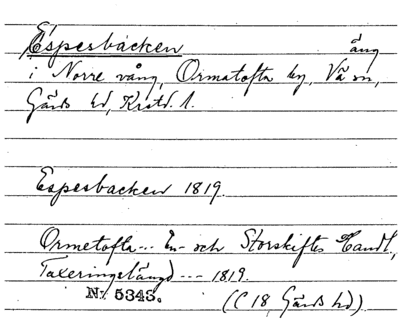 Espesbacken äng
i Norre vång, Ormatofta by, Vä sn,
Gärds hd, Kristd. l.
Espesbacken 1819.
Ormetofta--- En- och Storskiftes Handl.,
Taxeringslängd --- 1819.
Nr 5343. (C 18, Gärds hd).